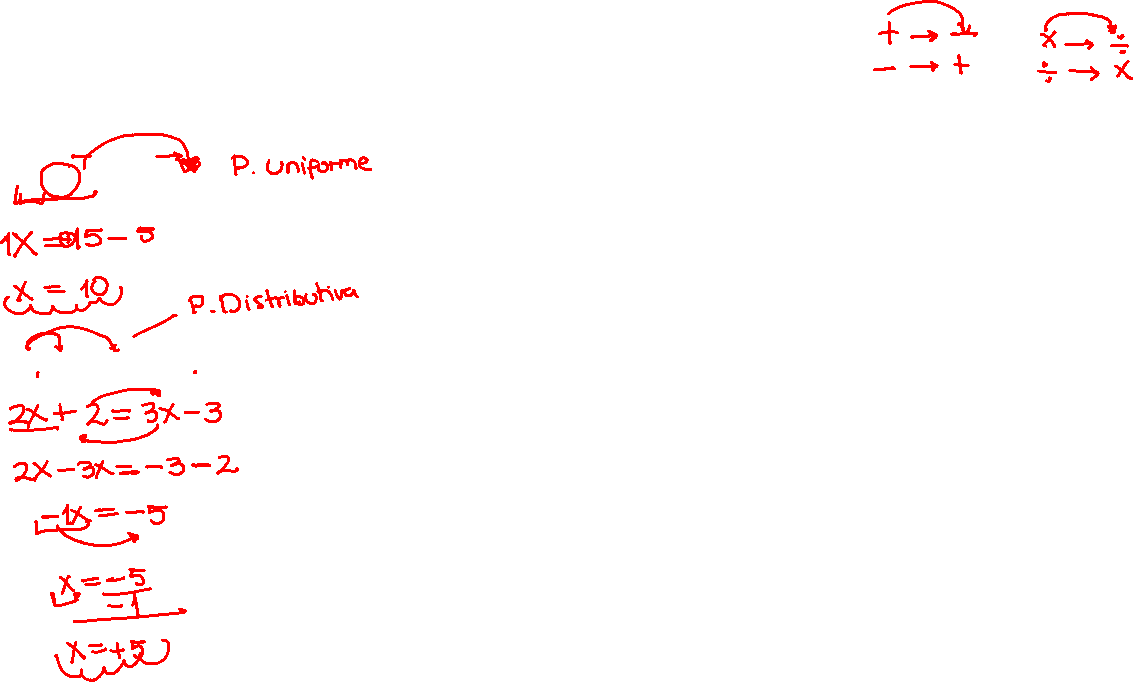 + → − x → ÷
− → + ÷ → x
P. uniforme
1x = +15 − 5
x = 10
P. Distributiva
2x + 2 = 3x − 3
2x − 3x = −3 − 2
−1x = −5
x = −5/−1
x = +5